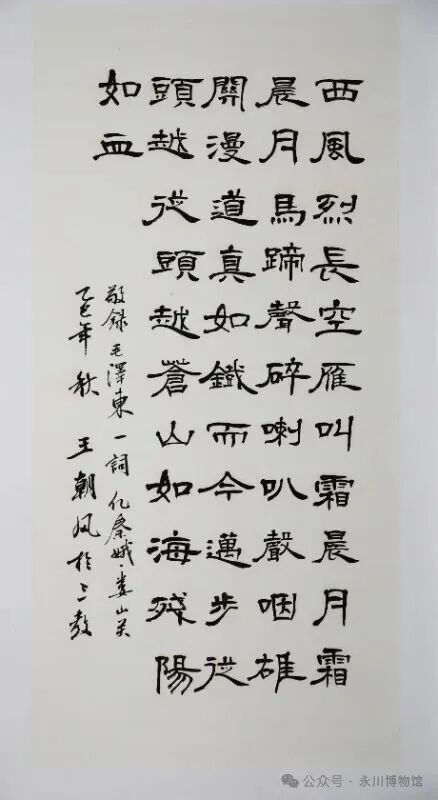 西風烈長空雁叫霜晨月霜
晨月馬蹄聲碎喇叭聲咽雄
關漫道真如鐵而今邁步從
頭越從頭越蒼山如海殘陽
如血
敬錄毛澤東一詞忆秦娥·婁山关
乙巳年秋 王朝风於三教
公众号·永川博物馆